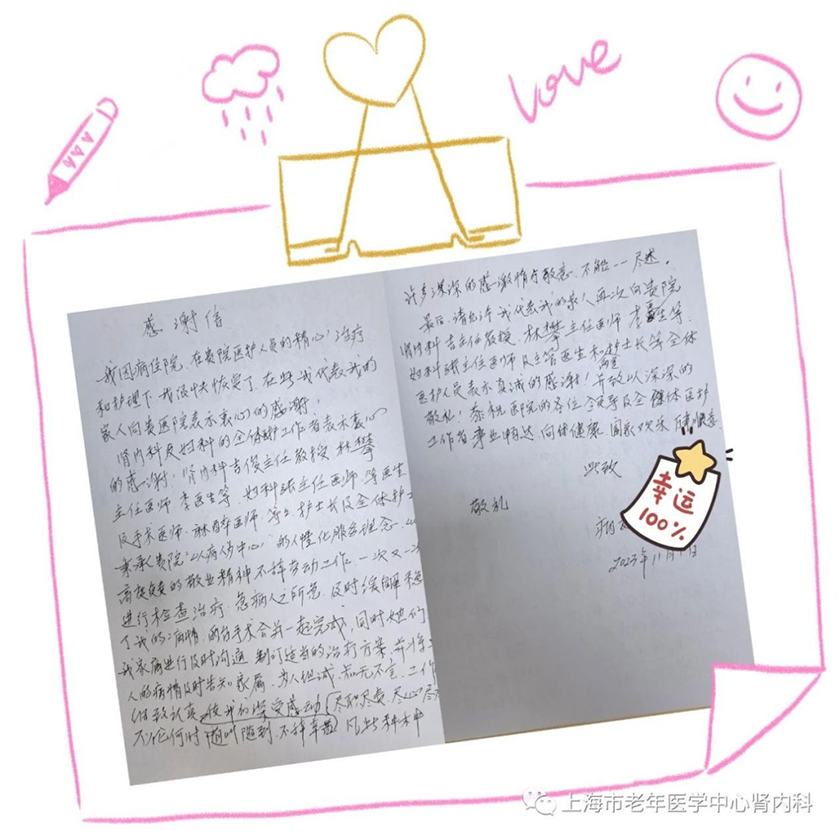 Love
感谢信
我因病住院，在贵院医护人员的精心治疗
和护理下我很快恢复了，在此我代表我的
家人向贵医院表示衷心的感谢！
肾内科及妇科的全体医护工作者表示衷心
的感谢，肾内科吉俊主任教授 林攀
主任医师 李医生等 妇科张主任医师 等医生
及手术医师 麻醉医师 等 护士长及全体护士
秉承贵院“以病人为中心”的人性化服务理念，以
高度负责的敬业精神不辞劳动工作，一次又一次
进行检查治疗，急病人之所急，及时缓解
了我的病情，两台手术合并一起完成，同时她们
我家属进行及时沟通 制订适当的治疗方案，并将
人的病情及时告知家属，知无不言，工作
细致认真 使我们深受感动 尽职尽责，尽心
不论何时 随叫随到，不辞辛苦 凡此种种
许多深深的感激情与敬意，不能一一尽述。
最后，请允许我代表我的家人再次向贵院
肾内科吉主任教授，林攀主任医师 李医生等
妇科张主任医师及主管医生和护士长等全体
医护人员表示真诚的感谢！并致以深深的
敬礼！恭祝医院的各位领导及全体医护
工作者事业畅达 向健康 阖家欢乐
此致
敬礼
2023年11月
幸运
100%
上海市老年医学中心肾内科